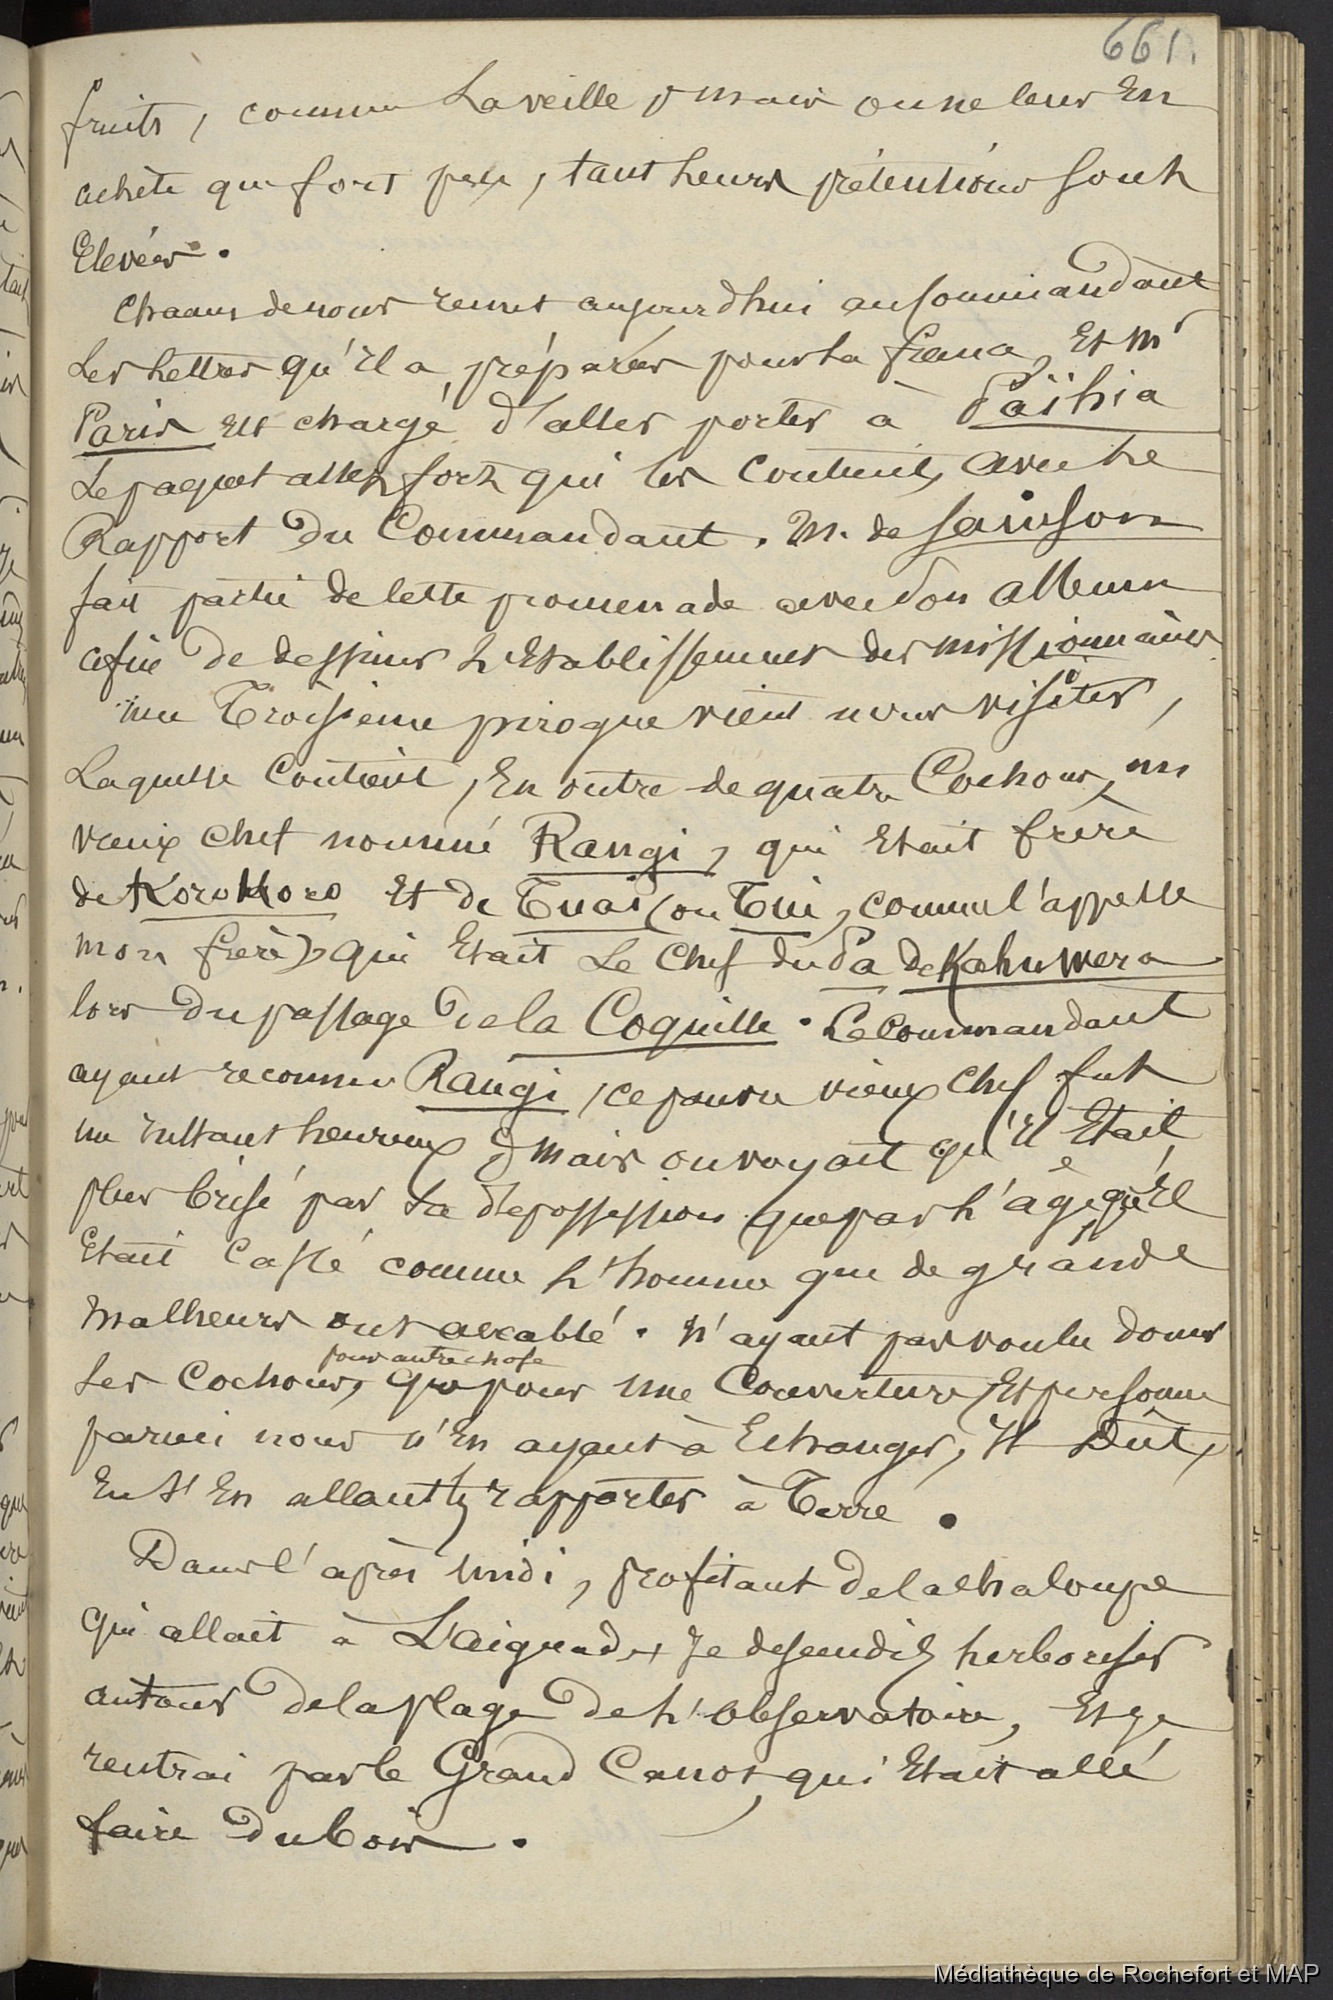 661.
fruits, comme La veille, mais on ne leur En
achète que fort peu, tant Leurs prétentions sont
Elevées.
Chacun de nous remet aujourd'hui au Commandant
Les Lettres qu'il a préparées pour La france, Et Mr
Paris Est chargé d'aller porter à Païhia
Le paquet assez fort qui les Contient, avec Le
Rapport Du Commandant. M. de Sainson
fait partie de Cette promenade avec son album
afin de dessiner L'Etablissement des missionnaires
une Troisième pirogue vient nous visiter,
Laquelle Contient, En outre de quatre Cochons, un
vieux chef nommé Rangi, qui Etait frère
de KoroKoro Et de Tuai (ou Tui, comme l'appelle
mon frère), qui Etait Le Chef du Pa de Kahuwera
lors Du passage de la Coquille. Le Commandant
ayant reconnu Rangi, ce pauvre vieux Chef fut
un instant heureux, mais on voyait qu'il Etait
plus brisé par Sa dépossession que par L'âge, qu'il
Etait Cassé comme L'homme que de grands
Malheurs ont accablé. N'ayant pas voulu donner
pour autre chose
Ses Cochons, que pour une Couverture, Et personne
parmi nous n'En ayant à Echanger, Il Dût,
En s'En allant, rapporter à Terre.
Dans l'après midi, profitant de la chaloupe
qui allait à L'aiguade, Je descendis herboriser
autour de la plage De L'observatoire, Et je
rentrai par le Grand Canot, qui Etait allé
faire Du bois.
Médiathèque de Rochefort et MAP